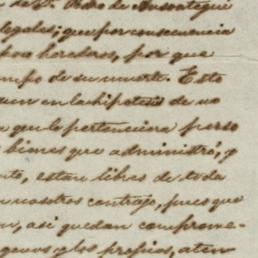 de D. Pedro de Ansoategui
legales; que por consecuencia
herederos, por que
tiempo de su muerte. Esto
en la hipotesis de no
que le pertenecira perso
bienes que administró, y
estan libres de toda
nosotros contrajo, pues que
n, asi quedan comprome-
los propios, aten